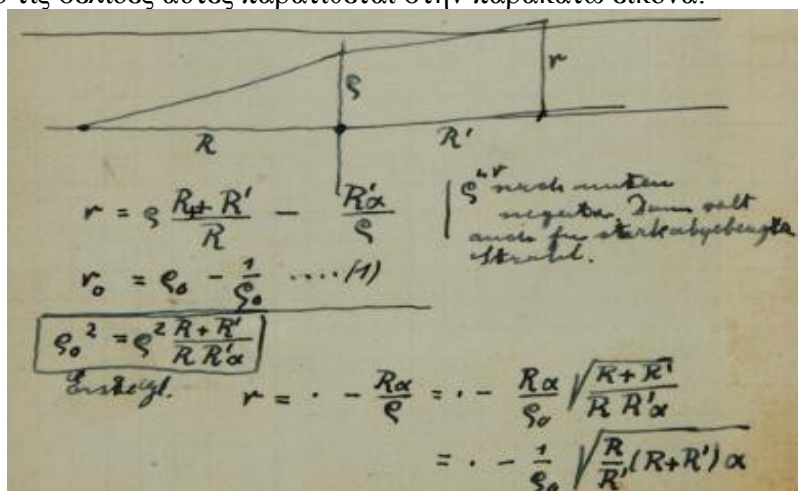 τις σελίδες αυτές παρατίθεται στην παρακάτω εικόνα:
ρ
r
R
R'
r = ρ (R + R')/R - R'α/ρ
ρ u r nach unten
negativ. Dann
auch für stark abgebeugte
Strahl.
r₀ = ρ₀ - 1/ρ₀ ....(1)
ρ₀² = ρ² (R + R')/(R R'α)
r = · - Rα/ρ = · - Rα/ρ₀ √((R + R')/(R R'α))
= · - 1/ρ₀ √(R/R' (R + R') α)